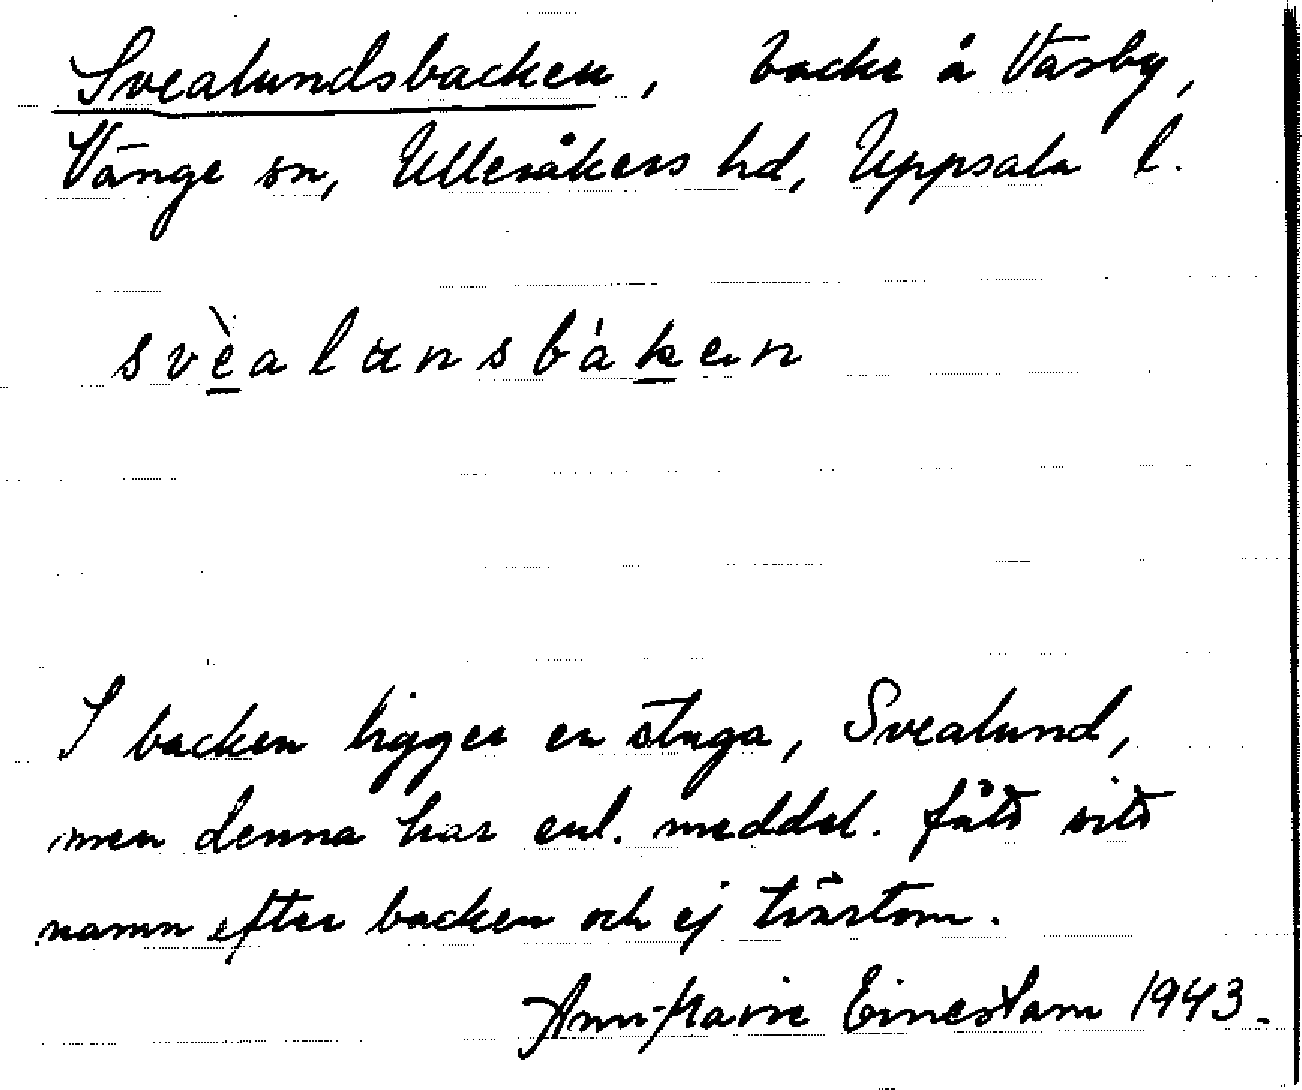 Svealundsbacken, backe å Väsby,
Vänge sn, Ulleråkers hd, Uppsala l.
svèalunsbáken
I backen ligger en stuga, Svealund,
men denna har enl. meddel. fått sitt
namn efter backen och ej tvärtom.
Ann-Marie Einestam 1943.